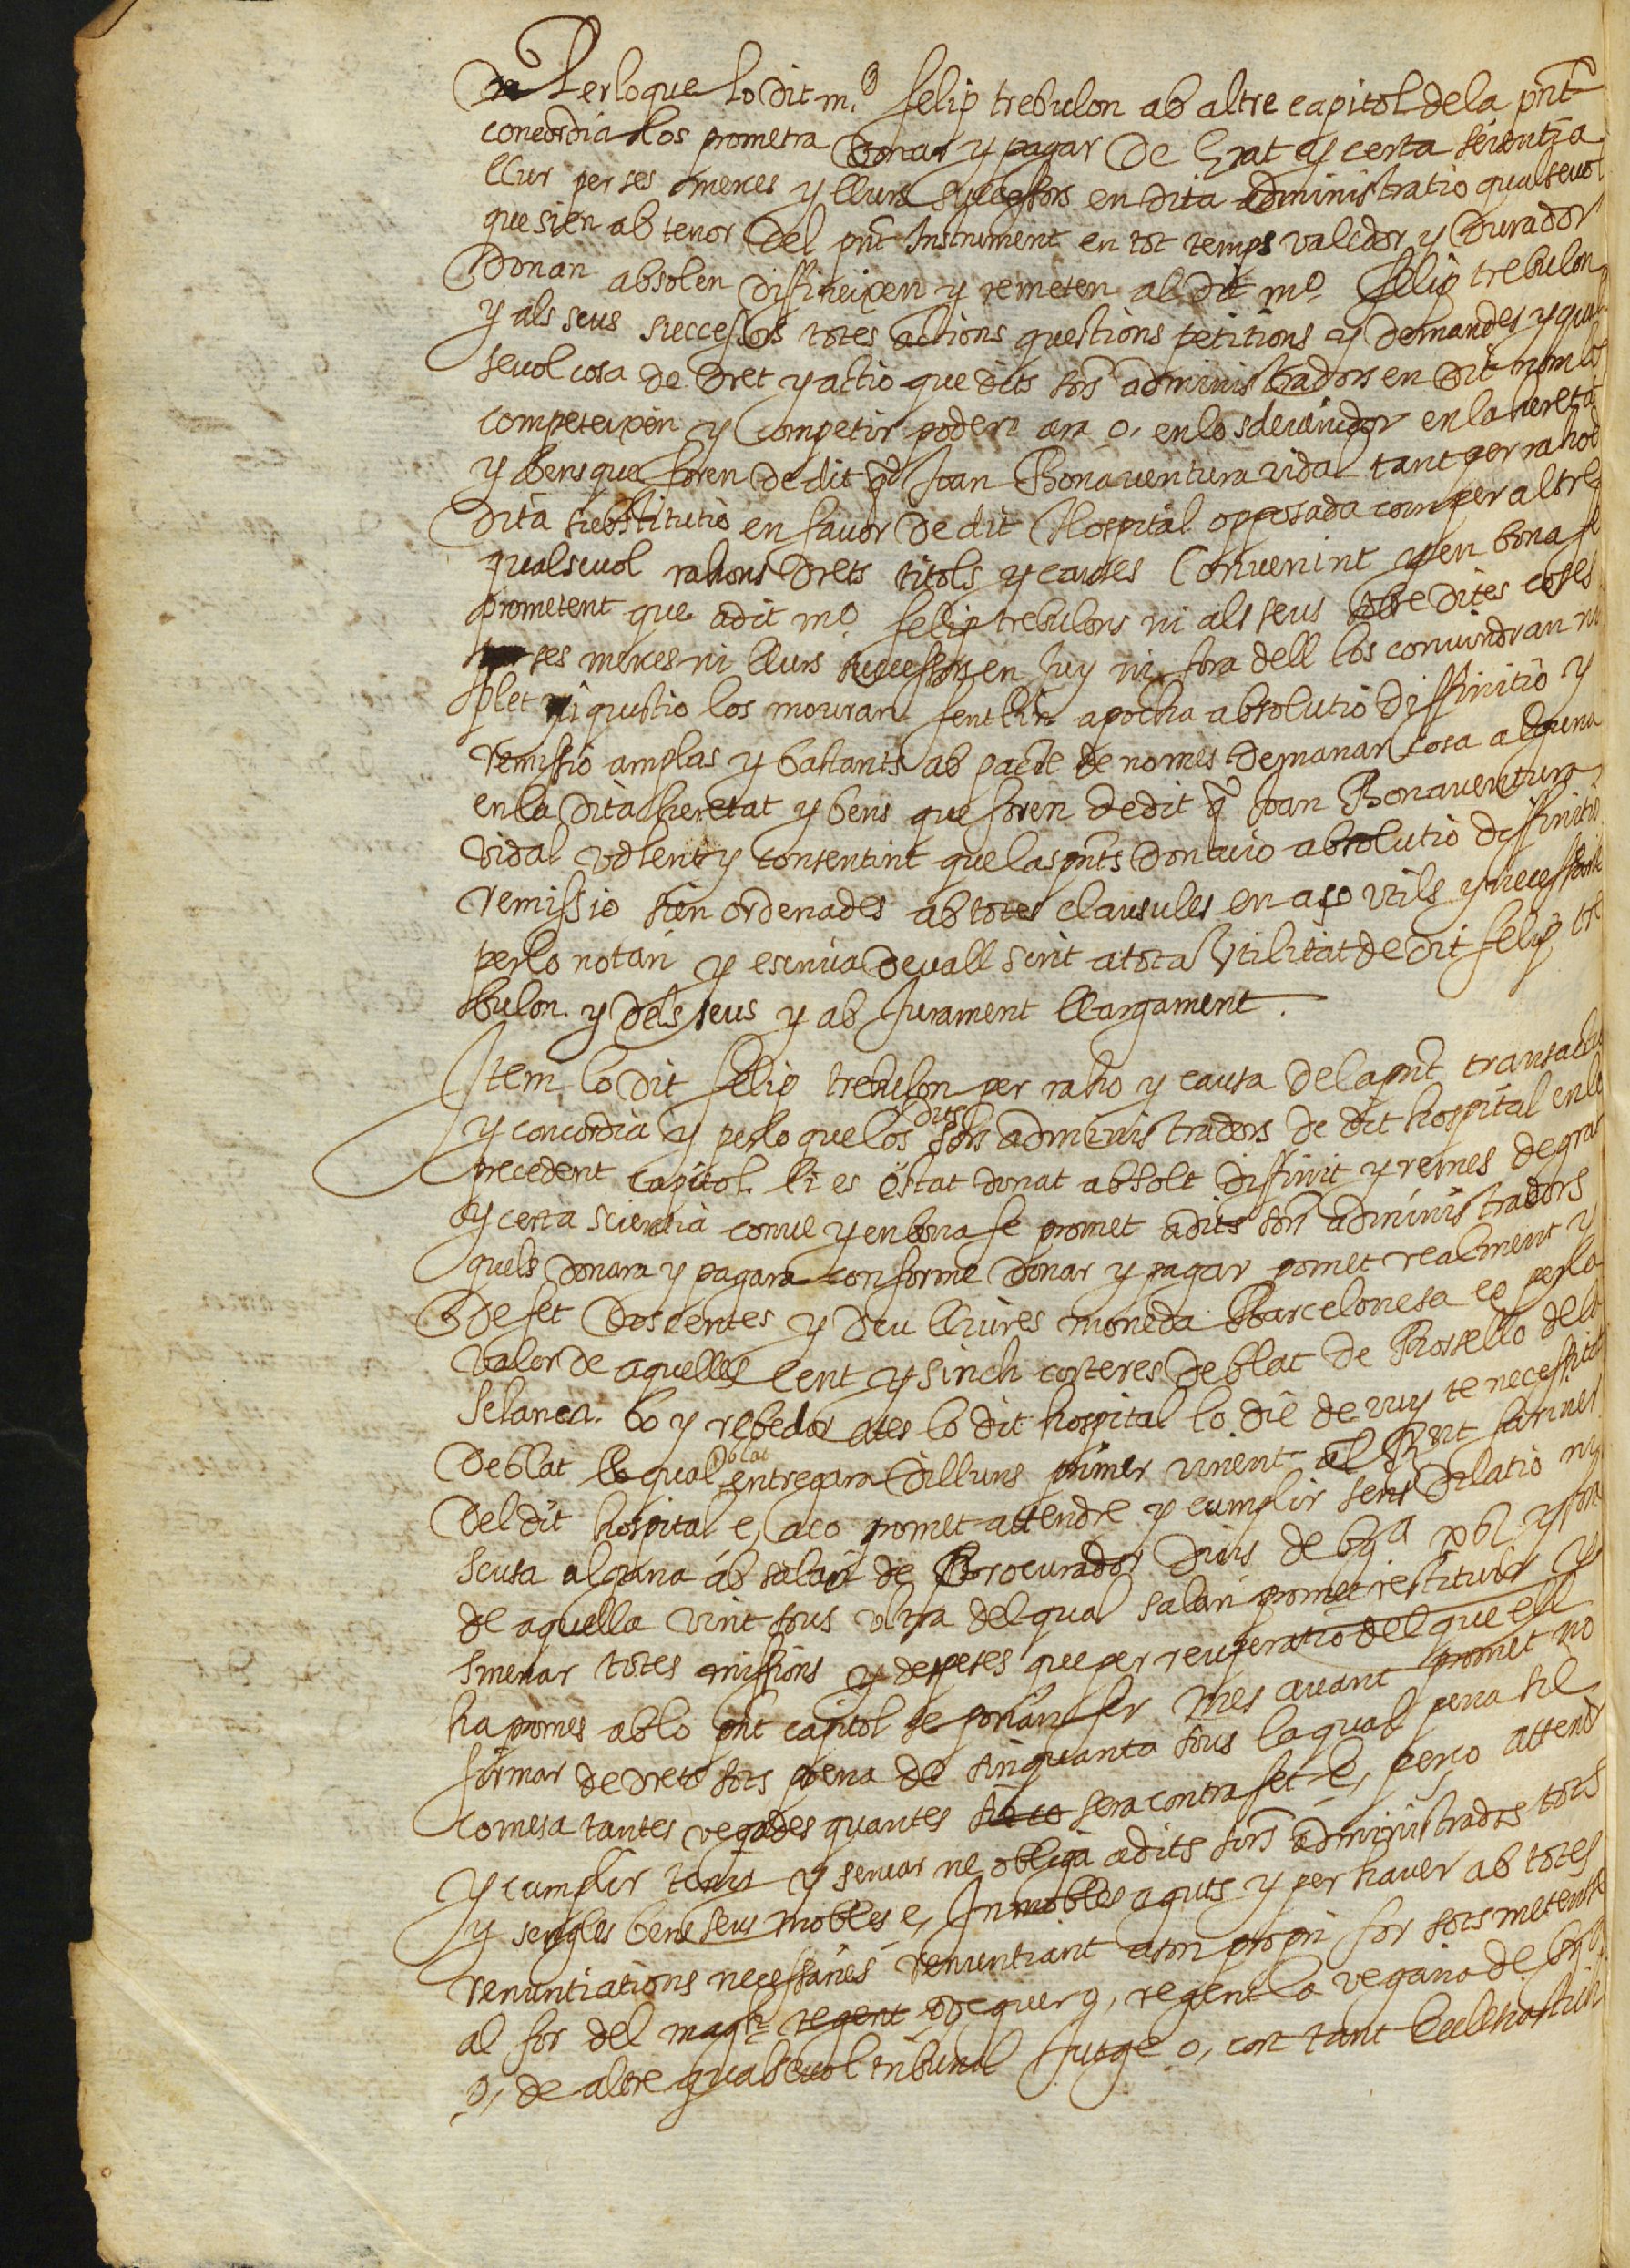 Perloque lo dit m.º felip trebulon ab altre capitol dela pnt
concordia los prometra donar y pagar De Grat y certa scientia
llur per ses merces y llurs successors en dita administratio qualsevol
que sien ab tenor Del pnt Instrument en tot temps valedor y durador
Donan absolen diffineixen y remeten al dit mº felip trebulon
y als seus successors totes actions questions petitions y demandes y qual
sevol cosa de dret y actio que dits sors administradors en dit nom
competeixen y competir poden ara o, enlo sdevenidor en la heretat
y bens que foren de dit qº Joan Bonaventura vidal tant per raho d
dita substitutio en favor de dit Hospital opposada com per altre
qualsevol rahons drets titols y causes Convenint y en bona fe
prometent que a dit mº felip trebulons ni als seus sobre dites coses
ses merces ni llurs successors en Juy ni fora dell los convindran ni
plet ni questio los mouran fent lin apocha absolutio diffinitio y
remissio amplas y bastants ab pacte de nomes demanar cosa alguna
en la dita heretat y bens que foren de dit qº Joan Bonaventura
vidal volent y consentint que las pnts donatio absolutio diffinitio
remissio sien ordenades ab totes clausules en aço utils y necessaries
perlo notari y escriva devall scrit a tota Utilitat de dit felip tre
bulon y dels seus y ab Jurament llargament.
Item lo dit felip trebulon per raho y causa dela pnt transactio
y concordia y perlo que los dits sors administradors de dit hospital enlo
precedent capitol li es estat donat absolt diffinit y remes de grat
y certa scientia conve y en bona fe promet a dits sors administradors
quels donara y pagara conforme donar y pagar promet realment y
de fet doscentes y deu lliures moneda Barcelonesa ço es perlo
valor de aquelles cent y sinch corteres de blat de Rossello dela
Selanca bo y rebedor ates lo dit hospital lo die de vuy te necessitat
de blat lo qual blat entregara dilluns primer vinent al Rnt fariner
del dit hospital e, aço promet attendre y cumplir sens dilatio ny
scusa alguna ab salari de Procurador dins de bªª xbl y fora
de aquella vint sous ultra del qual salari promet restituir y
smenar totes missions y despeses que per recuperatio del que ell
ha promes ablo pnt capitol se porian fer mes avant promet no
firmar de dret sots pena de sinquanta sous la qual pena sie
comesa tantes vegades quantes sera contra fet e, perço attendre
y cumplir tenir y servar ne obliga a dits sors administradors tots
y sengles bens seus mobles e, Inmobles aguts y per haver ab totes
renuntiations necessaries renuntiant a son propri for sots metentse
al for del magch regent o, regent la vegaria de
o, de altre qualsevol tribunal Jutge o, cort tant Ecclesiastich